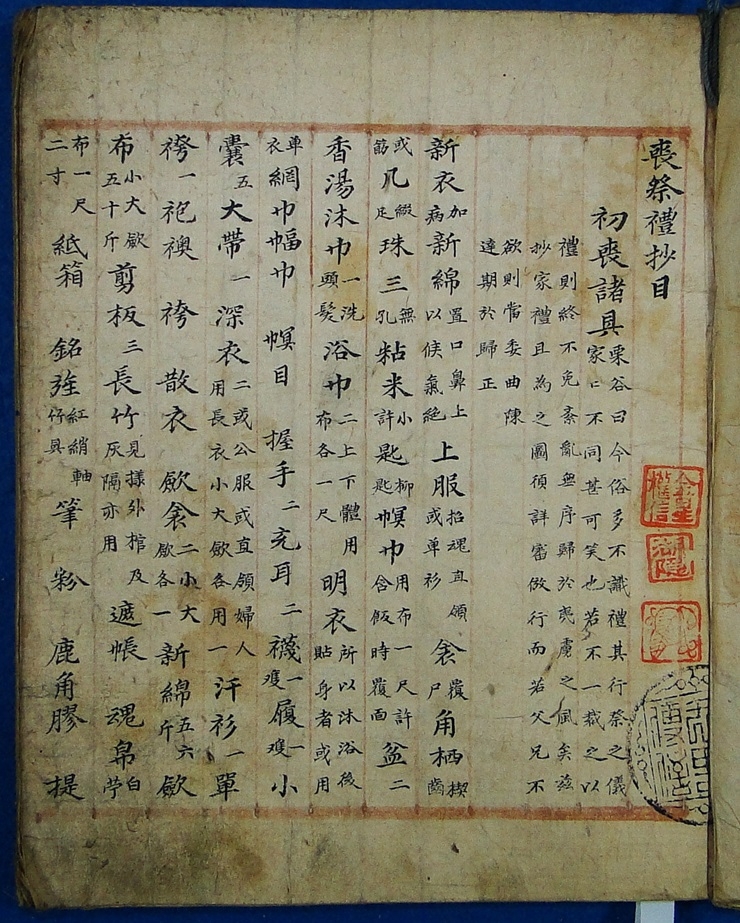 喪祭禮抄目
初喪諸具 栗谷曰今俗多不識禮其行祭之儀家〻不同甚可笑也若不一裁之以
禮則終不免紊亂無序歸於夷虜之風矣茲抄家禮且為之圖須詳審倣行而若父兄不
欲則當委曲陳達期於歸正
新衣加病新綿置口鼻上以候氣絶 上服招魂直領或單衫 衾覆尸 角柶楔齒
或筯几綴足珠三無孔粘米小許匙柳匙幎巾用布一尺許含飯時覆面盆二
香湯沐巾一洗頭髮浴巾二上下體用布各一尺明衣所以沐浴後貼身者或用
單衣網巾幅巾 幎目 握手二充耳二襪一雙履一雙小
囊五大帶一深衣二或公服或直領婦人用長衣小大歛各用一汗衫一單
袴一袍襖 袴 散衣 歛衾二小大歛各一新綿五六斤歛
布小大歛五十斤剪板三長竹見樣外棺及灰隔亦用 遮帳 魂帛白苧
布一尺二寸 紙箱 銘旌紅綃軸竹具 筆 粉 鹿角膠 提